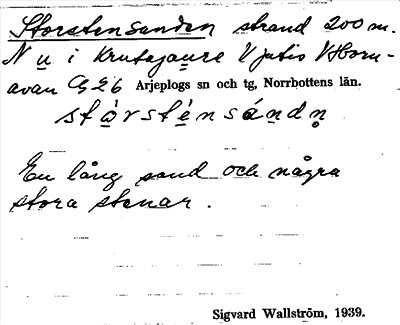 Storstensanden strand 200 m.
N u i Krutajaure V Horn-
avan G 26 Arjeplogs sn och tg, Norrbottens län.
stòrsténsándn̥
En lång sand och några
stora stenar.
Sigvard Wallström, 1939.